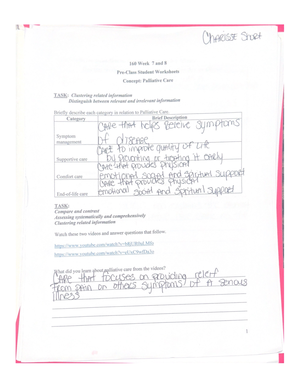 CHARISSE Short
160 Week 7 and 8
Pre-Class Student Worksheets
Concept: Palliative Care
TASK: Clustering related information
Distinguish between relevant and irrelevant information
Briefly describe each category in relation to Palliative Care.
Category Brief Description
Symptom management Care that helps Receive Symptoms
OF disease
Supportive care Care to improve quality of life
by preventing or treating it early
Comfort care Care that provides physical
emotional social and spiritual support
End-of-life care Care that provides physical
emotional social and Spiritual support
TASK:
Compare and contrast
Assessing systematically and comprehensively
Clustering related information
Watch these two videos and answer questions that follow.
What did you learn about palliative care from the videos?
Care that focuses on providing relief
from pain or others symptoms of a serious
illness
1